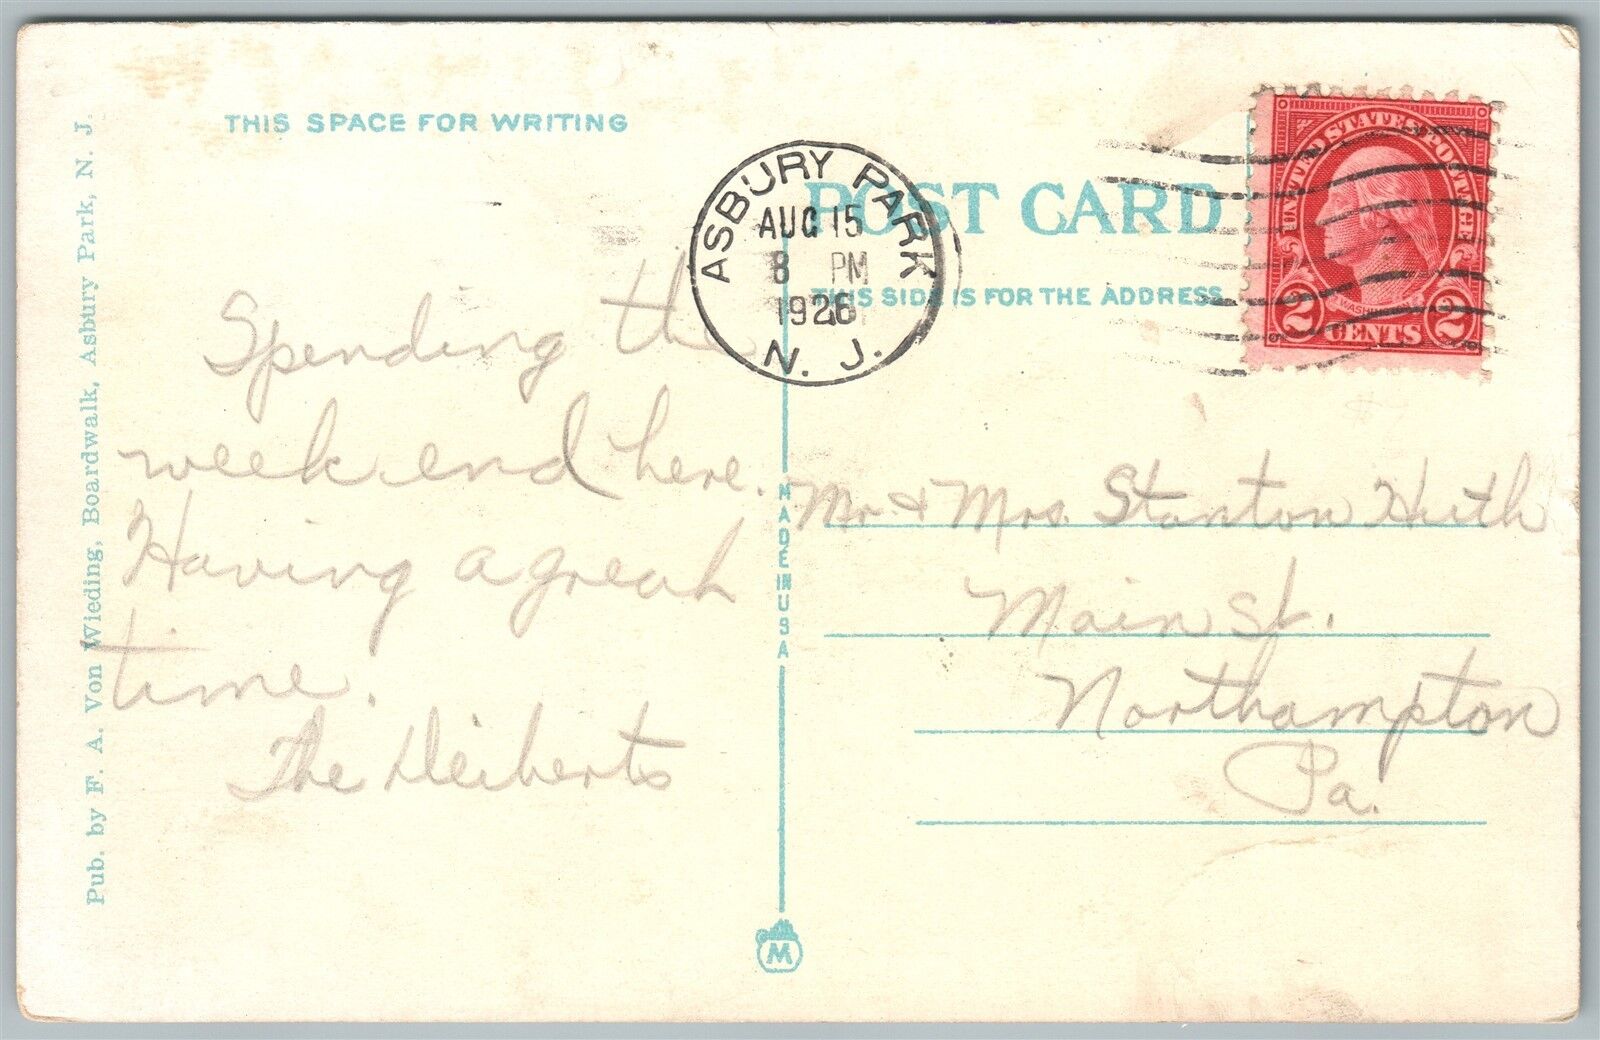 THIS SPACE FOR WRITING
Spending the
week end here.
Having a great
time.
The Deiberts
Pub. by F. A. Von Wieding, Boardwalk, Asbury Park, N. J.
ASBURY PARK
AUG 15
8 PM
1926
N. J.
POST CARD
THIS SIDE IS FOR THE ADDRESS
UNITED STATES POSTAGE
WASHINGTON
2 CENTS 2
MADE IN USA
Mr & Mrs. Stanton Huth
Main St.
Northampton
Pa.
M